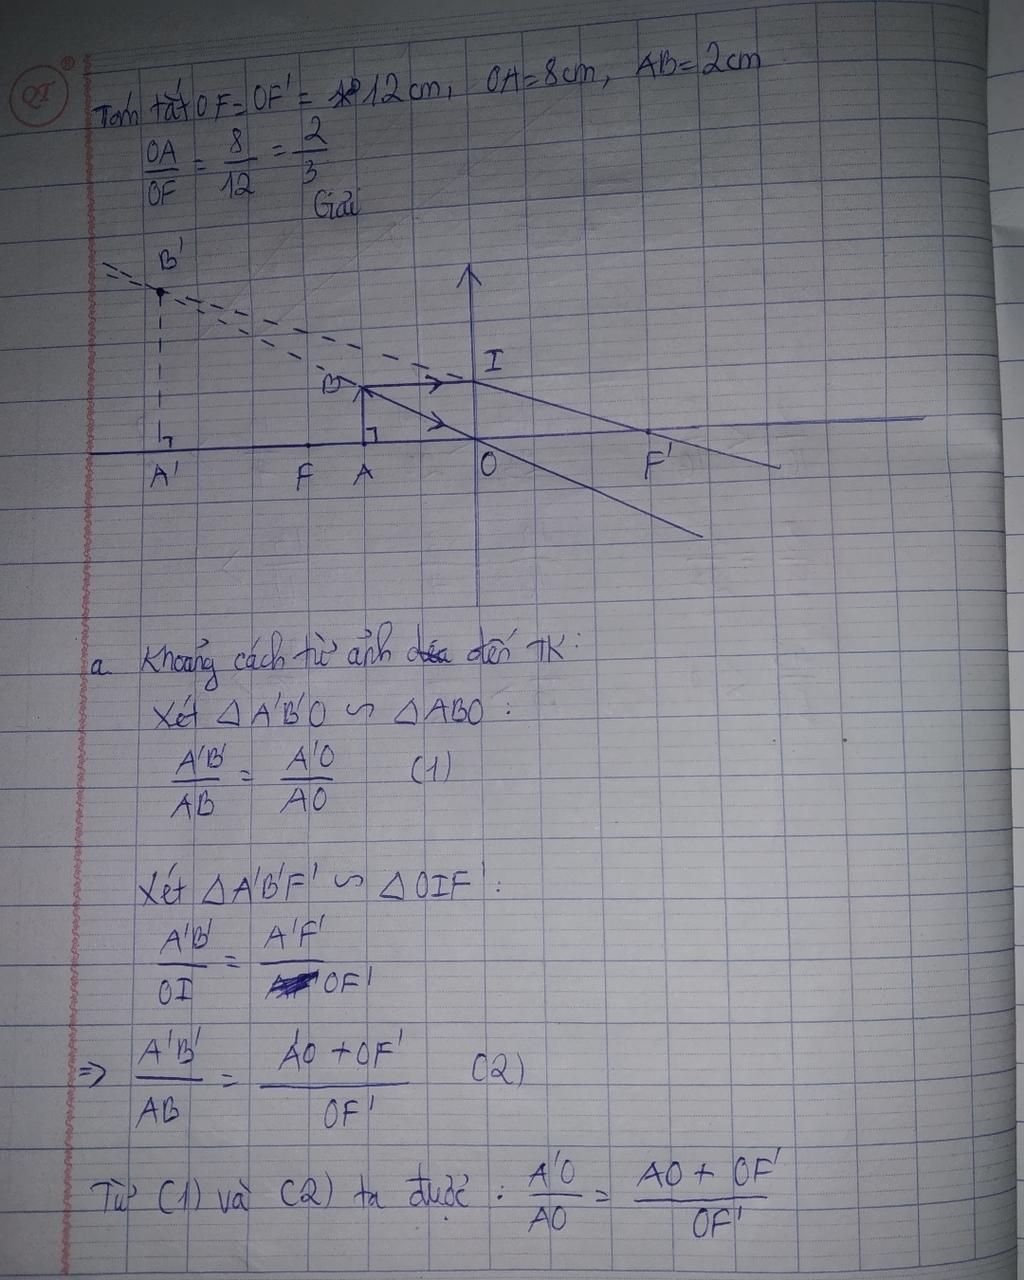 QT
Tóm tắt OF = OF' = 12cm, OA = 8cm, AB = 2cm
OA/OF = 8/12 = 2/3
Giải
B'
I
B
A' F A O F'
a. Khoảng cách từ ảnh đến TK:
Xét ΔA'B'O ∽ ΔABO:
A'B'/AB = A'O/AO (1)
Xét ΔA'B'F' ∽ ΔOIF':
A'B'/OI = A'F'/OF'
=> A'B'/AB = A'O + OF'/OF' (2)
Từ (1) và (2) ta được: A'O/AO = AO + OF'/OF'